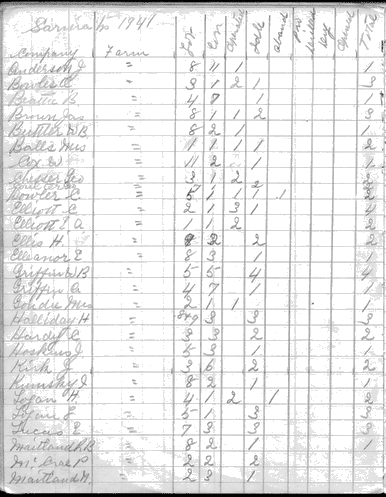 Sarnia 1941
Company Farm Lot Con Operated Idle Aband Total
Anderson J " 8 4 1 1
Bowles C " 3 1 2 1 3
Beattie B " 4 7 1 1
Brown Jas " 8 1 1 2 3
Buttler W B " 8 2 1 1
Balls Mrs " 1 1 1 1 2
Cox W " 11 2 1 1
Geo " 3 1 2
Fowler C " 5 1 1 1 1
Elliott C " 2 1 3 1 4
Elliott E A " 1 1 2 2
Ellis H. " 8 2 2 2
Elleanor E " 8 3 1 1
Griffin W B " 5 5 4 4
Griffin A " 4 7 1 1
Mrs " 2 1 1 1
Halliday H " 3 3 3
Hardy C " 3 3 2 2
Hoskins J " 5 3 1 1
Kirk J " 3 6 2 2
Rumsky J " 8 2 1 1
Logan H. " 4 1 2 1
" 5 1 3 3
Lucas E " 7 3 3 3
Maitland R B " 8 2 1 1
McCrae P " 2 2 2 2
Maitland N. " 2 3 1 1